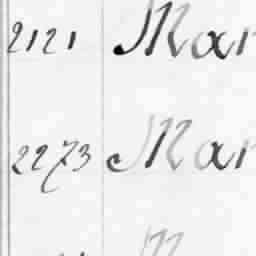 2121 Mar
2273 Mar